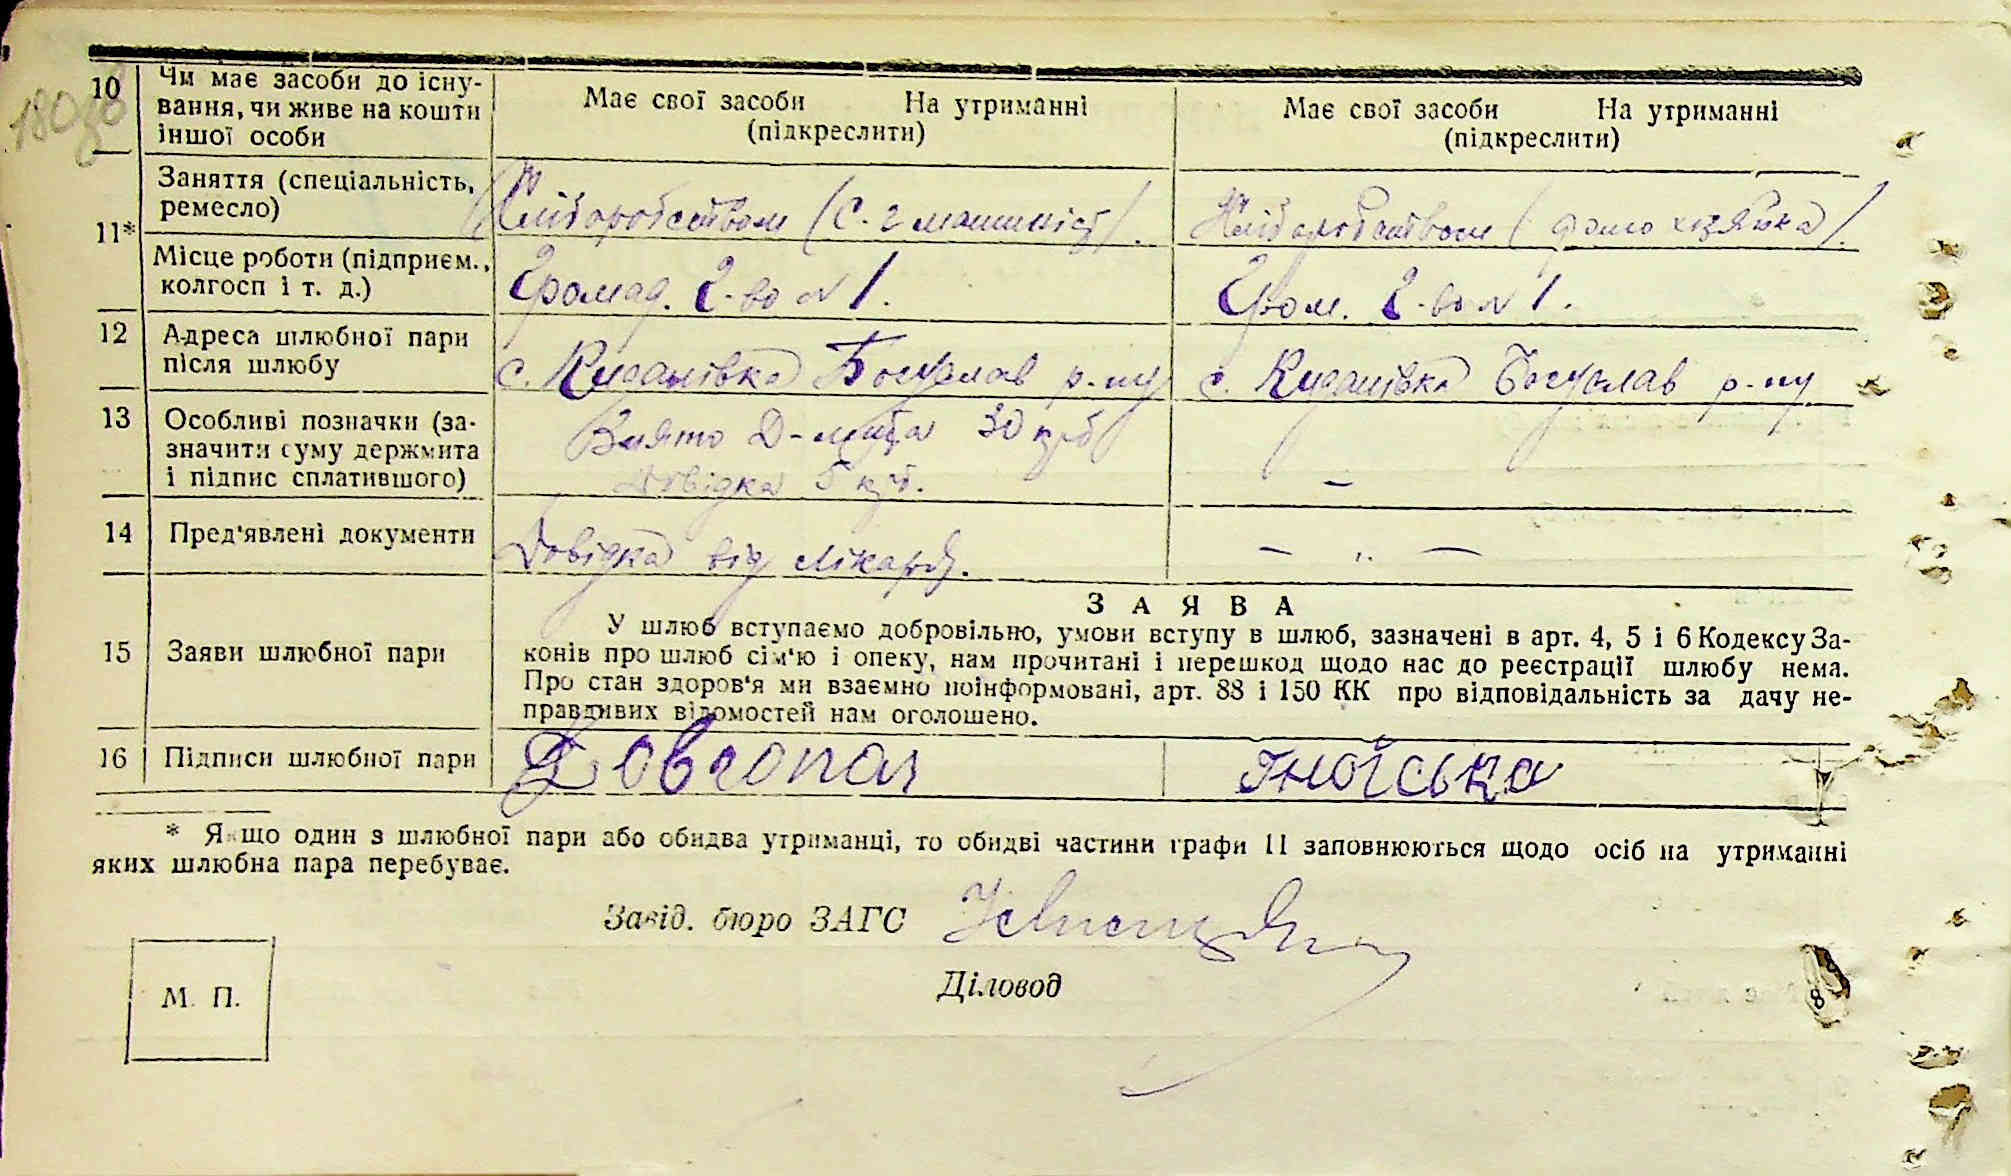 180зв
10 Чи має засоби до існу-
вання, чи живе на кошти
іншої особи
Має свої засоби На утриманні
(підкреслити)
Має свої засоби На утриманні
(підкреслити)
11*
Заняття (спеціальність,
ремесло)
Хліборобством (с. г машиніст).
Хліборобством (домо хазяйка).
Місце роботи (підприєм.,
колгосп і т. д.)
Громад. 2-во № 1.
Гром. 2-во № 1.
12 Адреса шлюбної пари
після шлюбу
с. Киданівка Богуслав р-ну
с. Киданівка Богуслав р-ну
13 Особливі позначки (за-
значити суму держмита
і підпис сплатившого)
Взято Д-мита 30 крб
Довідка 5 крб.
—
14 Пред'явлені документи
Довідка від лікаря.
— „ —
15 Заяви шлюбної пари
ЗАЯВА
У шлюб вступаємо добровільно, умови вступу в шлюб, зазначені в арт. 4, 5 і 6 Кодексу За-
конів про шлюб сім'ю і опеку, нам прочитані і перешкод щодо нас до реєстрації шлюбу нема.
Про стан здоров'я ми взаємно поінформовані, арт. 88 і 150 КК про відповідальність за дачу не-
правдивих відомостей нам оголошено.
16 Підписи шлюбної пари
Довгопол
Гноїська
* Якщо один з шлюбної пари або обидва утриманці, то обидві частини графи 11 заповнюються щодо осіб на утриманні
яких шлюбна пара перебуває.
Завід. бюро ЗАГС
Діловод
М. П.
8